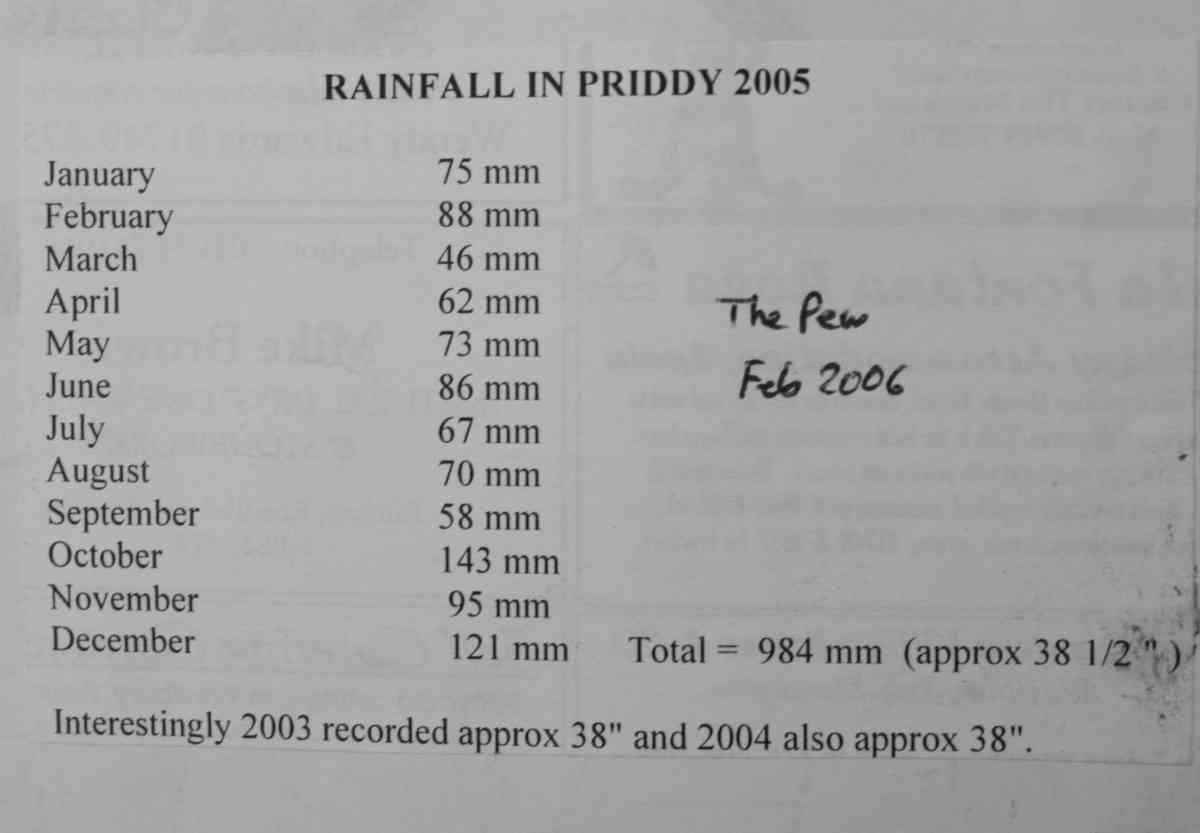 RAINFALL IN PRIDDY 2005
January 75 mm
February 88 mm
March 46 mm
April 62 mm
May 73 mm
June 86 mm
July 67 mm
August 70 mm
September 58 mm
October 143 mm
November 95 mm
December 121 mm Total = 984 mm (approx 38 1/2 ".)
The Pew
Feb 2006
Interestingly 2003 recorded approx 38" and 2004 also approx 38".